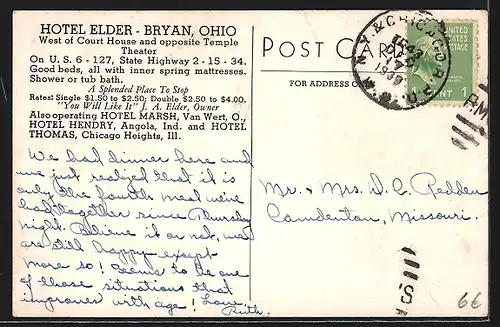 HOTEL ELDER - BRYAN, OHIO
West of Court House and opposite Temple
Theater
On U.S. 6 - 127, State Highway 2 - 15 - 34.
Good beds, all with inner spring mattresses.
Shower or tub bath.
A Splendid Place To Stop
Rates: Single $1.50 to $2.50; Double $2.50 to $4.00.
"You Will Like It" J. A. Elder, Owner
Also operating HOTEL MARSH, Van Wert, O.,
HOTEL HENDRY, Angola, Ind. and HOTEL
THOMAS, Chicago Heights, Ill.
We had dinner here and
we just realized that it is
only the fourth meal we've
had together since Thursday
night. Believe it or not, we
are still happy except
more so! Seems to be one
of those situations that
improves with age! Love,
Ruth.
POST CARD
FOR ADDRESS ONLY
N.Y. & CHICAGO R.P.O.
UNITED STATES
POSTAGE
CENT 1
RM
Mr. & Mrs. D. C. Redden
Camdenton, Missouri.
S
6€